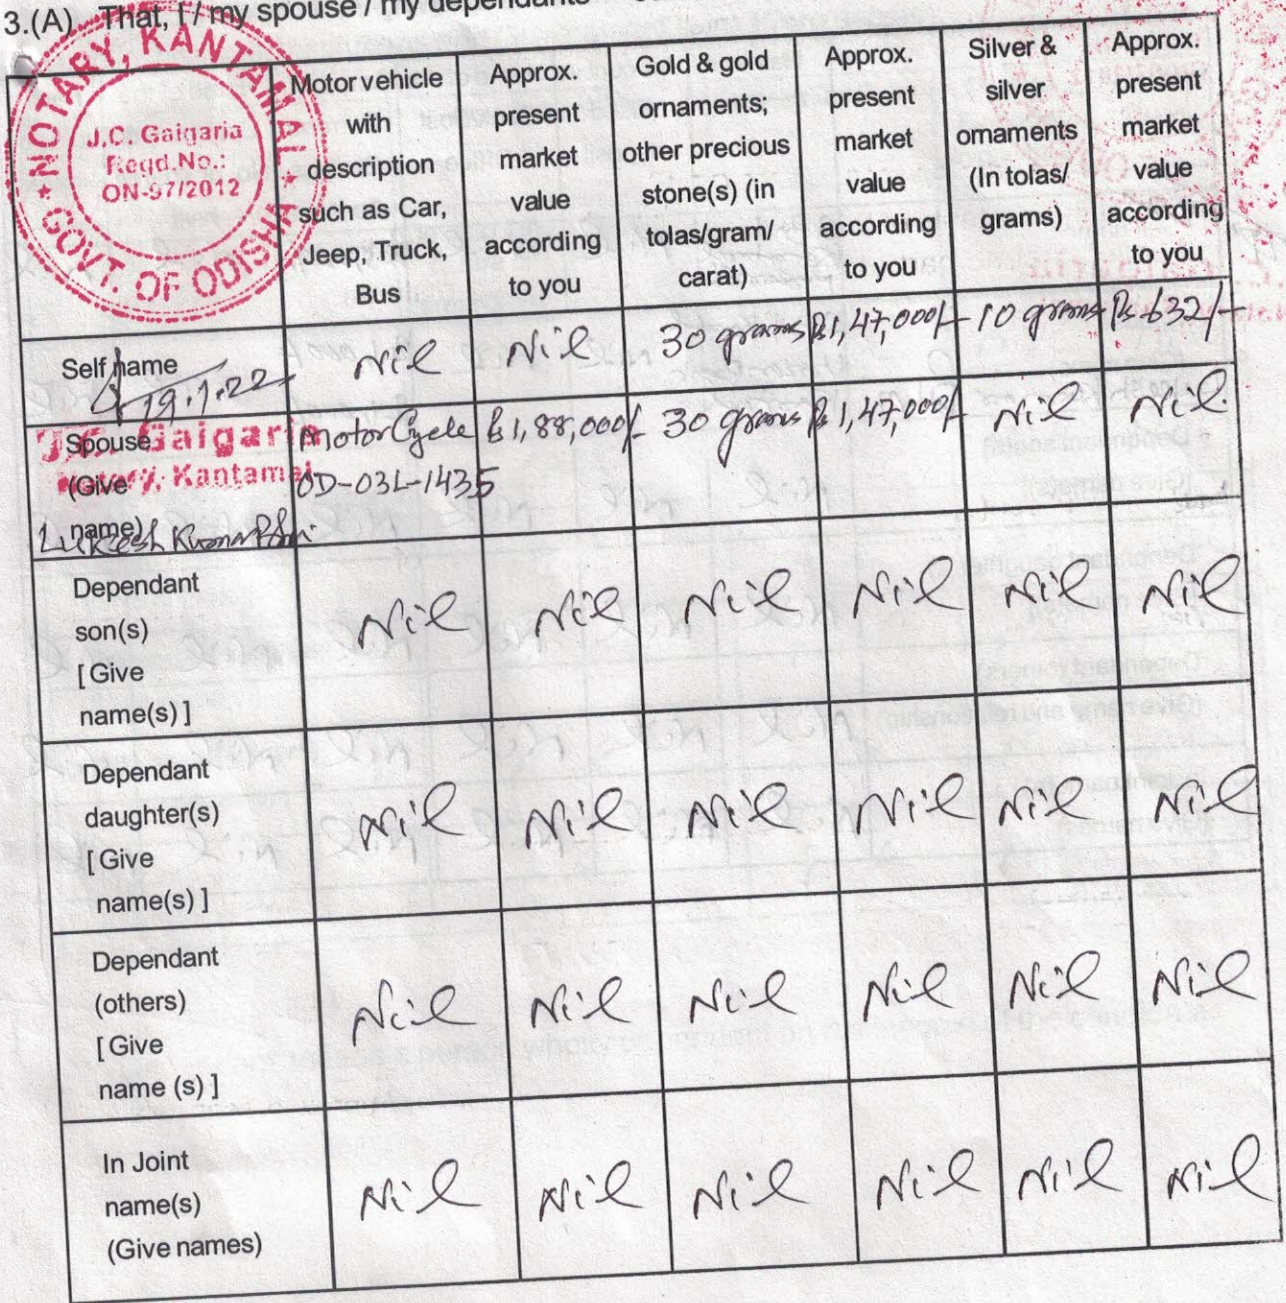 3.(A) That, I / my spouse / my dependants
NOTARY, KANTAMAL
GOVT. OF ODISHA
J.C. Gaigaria
Regd.No.:
ON-97/2012
Motor vehicle
with
description
such as Car,
Jeep, Truck,
Bus
Approx.
present
market
value
according
to you
Gold & gold
ornaments;
other precious
stone(s) (in
tolas/gram/
carat)
Approx.
present
market
value
according
to you
Silver &
silver
ornaments
(In tolas/
grams)
Approx.
present
market
value
according
to you
Self name Nil Nil 30 grams Rs 1,47,000/- 10 grams Rs. 632/-
19.1.22
J.C. Gaigaria
Notary, Kantamal
Spouse Motor Cycle Rs 1,88,000/- 30 grams Rs 1,47,000/- Nil Nil
(Give OD-03L-1435
name)
Kumar
Dependant
son(s) Nil Nil Nil Nil Nil Nil
[ Give
name(s) ]
Dependant
daughter(s) Nil Nil Nil Nil Nil Nil
[ Give
name(s) ]
Dependant
(others) Nil Nil Nil Nil Nil Nil
[ Give
name (s) ]
In Joint
name(s) Nil Nil Nil Nil Nil Nil
(Give names)